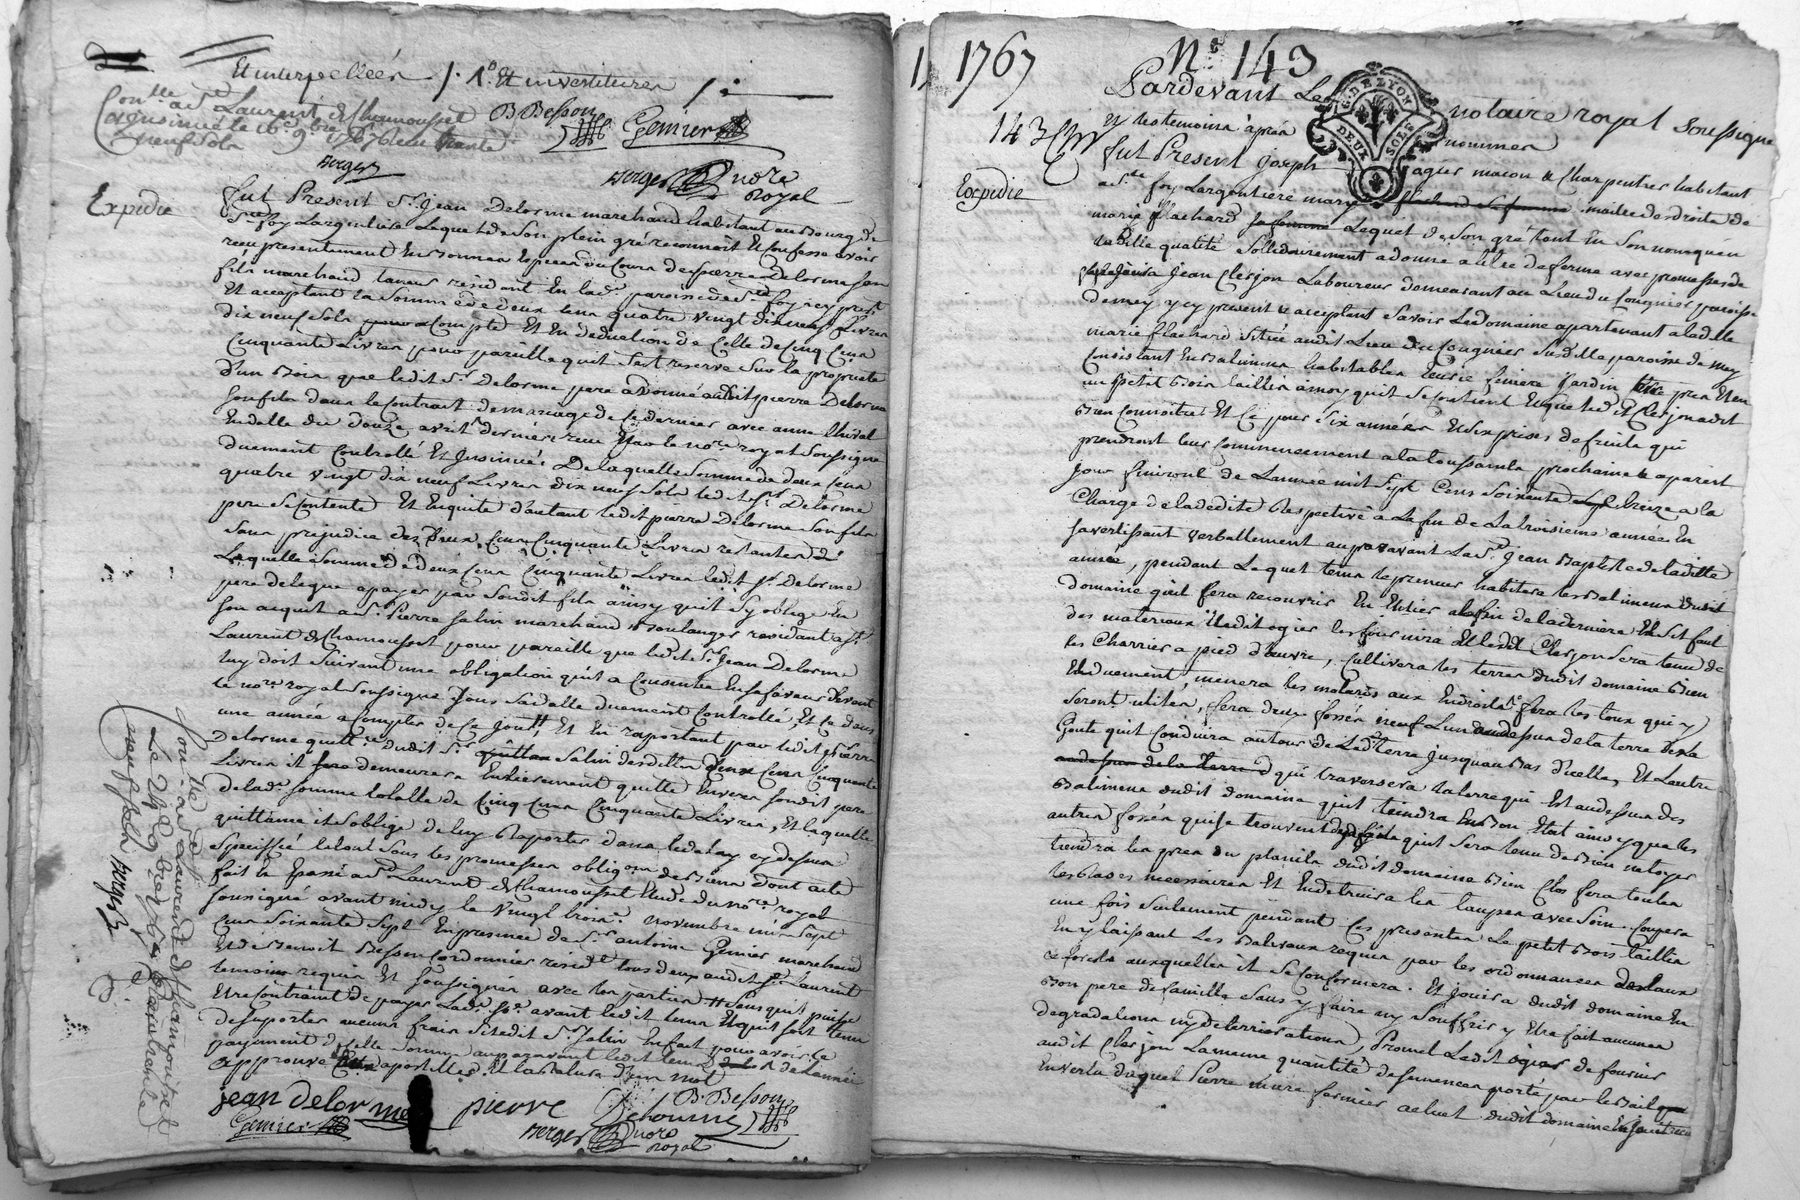 Et interpellées /. 1º. Et investitures /.
Con.lle a S.t Laurent de Chamousset B Besson
et insinué le 26 9.bre 1767 Reçu trente Genier
neuf sols
Berger Berger Nore
royal
Expedié
fut Present S.r Jean Delorme marchand habitant au Bourg de
S.te foy Largentiere Lequel de son plein gré reconnoit Et Confesse avoir
reçu presentement En bonnes Especes du Cours de pierre Delorme son
fils marchand taneur residant En lad.e paroisse de S.te foy icy pres.t
Et acceptant la somme de deux Cens quatre vingt dix neuf Livres
dix neuf sols a Compte Et En deduction de Celle de Cinq Cens
Cinquante Livres pour pareille qu'il s'est reservé sur la proprieté
d'un Bois que ledit S.r Delorme pere a donné audit pierre Delorme
son fils dans le Contrat de mariage de Ce dernier avec anne
En datte du douze avril dernier reçu par le no.re royal soussigné
duement Controllé Et Insinué; De laquelle somme de deux Cens
quatre vingt dix neuf Livres dix neuf sols ledit S.r Delorme
pere se Contente Et En quite d'autant ledit pierre Delorme son fils
sans prejudice des deux Cens Cinquante Livres restantes de
Laquelle somme de deux Cens Cinquante Livres ledit S.r Delorme
pere delegue a payer par sondit fils ainsy qu'il s'y oblige En
son acquit a S.r Pierre Salin marchand Boulanger residant a S.t
Laurent de Chamousset pour pareille que ledit S.r Jean Delorme
luy doit suivant une obligation qu'il a Consentie En sa faveur devant
le no.re royal soussigné sous sa datte duement Controllé, Et Ce dans
une année a Compter de Ce jour, Et En raportant par ledit pierre
Delorme quitt.ce dudit S.r Salin desdites deux Cens Cinquante
Livres il demeurera Entierement quitte Envers sondit pere
de lad.e somme totalle de Cinq Cens Cinquante Livres, Et laquelle
quittance il s'oblige de luy Raporter dans ledelay cy dessus
Specifié le tout sous les promesses oblig.ons de Biens dont acte
fait Et Passé a S.t Laurent de Chamousset Etude du no.re royal
soussigné avant midy le vingt trois.e novembre mil sept
Cens soixante sept En presence de S.r antoine Genier marchand
Et de Benoit Besson Cordonnier resid.t tous deux audit S.t Laurent
temoins requis Et soussignés avec les parties sans qu'il puisse
Etre Contraint de payer Lad.e s.e avant ledit tems Et qu'il soit tenu
de suporter aucuns frais si ledit S.r Salin En fait pour avoir le
payement d'icelle somme auparavant ledit tems de l'année
approuvé apostilles. Et la rature d'un mot
jean delorme pierre Delorme B. Besson
Genier Berger Nore
royal
Con.lle a S.t Laurent de Chamousset
Le 26 9.bre 1767 Reçu trente
neuf sols Berger
1767 Nº. 143
Pardevant Le notaire royal soussigné
Et les temoins après nommés
143
Expedié
G. DE LYON
DEUX SOLS
fut Present joseph ogier macon & Charpentier habitant
a S.te foy Largentiere mary maitre des droits de
marie flachard Lequel de son gré tant En son nom qu'en
lad.ite qualité sollidairement a donné a titre de ferme avec promesse de
jouir a Jean Clerjon Laboureur demeurant au Lieu du Cougnier paroisse
de mey, y cy present & acceptant Savoir Le domaine appartenant a lad.ite
marie flachard situé audit Lieu du Cougnier Susd.ite paroisse de mey
Consistant En Batimens habitables Ecurie feniere jardin prés Et en
un petit Bois taillis ainsy qu'il se Contient Et que ledit Clerjon a dit
Bien Connoitre Et Ce pour six années Et six prises de fruits qui
prendront leur Commencement a la toussaints prochaine & a pareil
jour finiront de L'année mil sept Cens soixante treize a la
Charge de la dedite Respective a La fin de La troisieme année En
s'avertissant verballement auparavant La S.t Jean Baptiste de ladite
année, pendant Lequel tems le preneur habitera les Batimens dudit
domaine qu'il fera recouvrir En Entier a la fin de la derniere Et s'il faut
des materiaux ledit ogier les fournira Et ledit Clerjon sera tenu de
les Charrier a pied d'œuvre, Cultivera les terres dudit domaine Bien
Et duement, menera les molards aux Endroits fera les tous qui y
seront utiles, fera deux fossés neufs L'un audessus de la terre
Goute qu'il Conduira autour de Lad.e terre jusques au Bas d'icelle, Et L'autre
qui traversera la terre qui Est audessus des
Batimens dudit domaine qu'il tiendra En Bon Etat ainsy que les
autres fossés qui se trouvent qu'il sera tenu de Bien netoyer
tiendra les prés du planil dudit domaine Bien Clos fera toutes
les Rases necessaires Et En detruira les taupes avec Soin. Coupera
une fois seulement pendant Ces presentes Le petit Bois taillis
En y laissant Les Baliveaux requis par les ordonnances des Eaux
& forets auxquelles il se Conformera. Et jouira dudit domaine En
Bon pere de famille sans y faire ny Souffrir y Etre fait aucunes
degradations ny deterriorations, Promet Ledit ogier de fournir
audit Clerjon La meme quantité de semences porté par le Bail
En vertu duquel Pierre mure fermier actuel dudit domaine En jouit